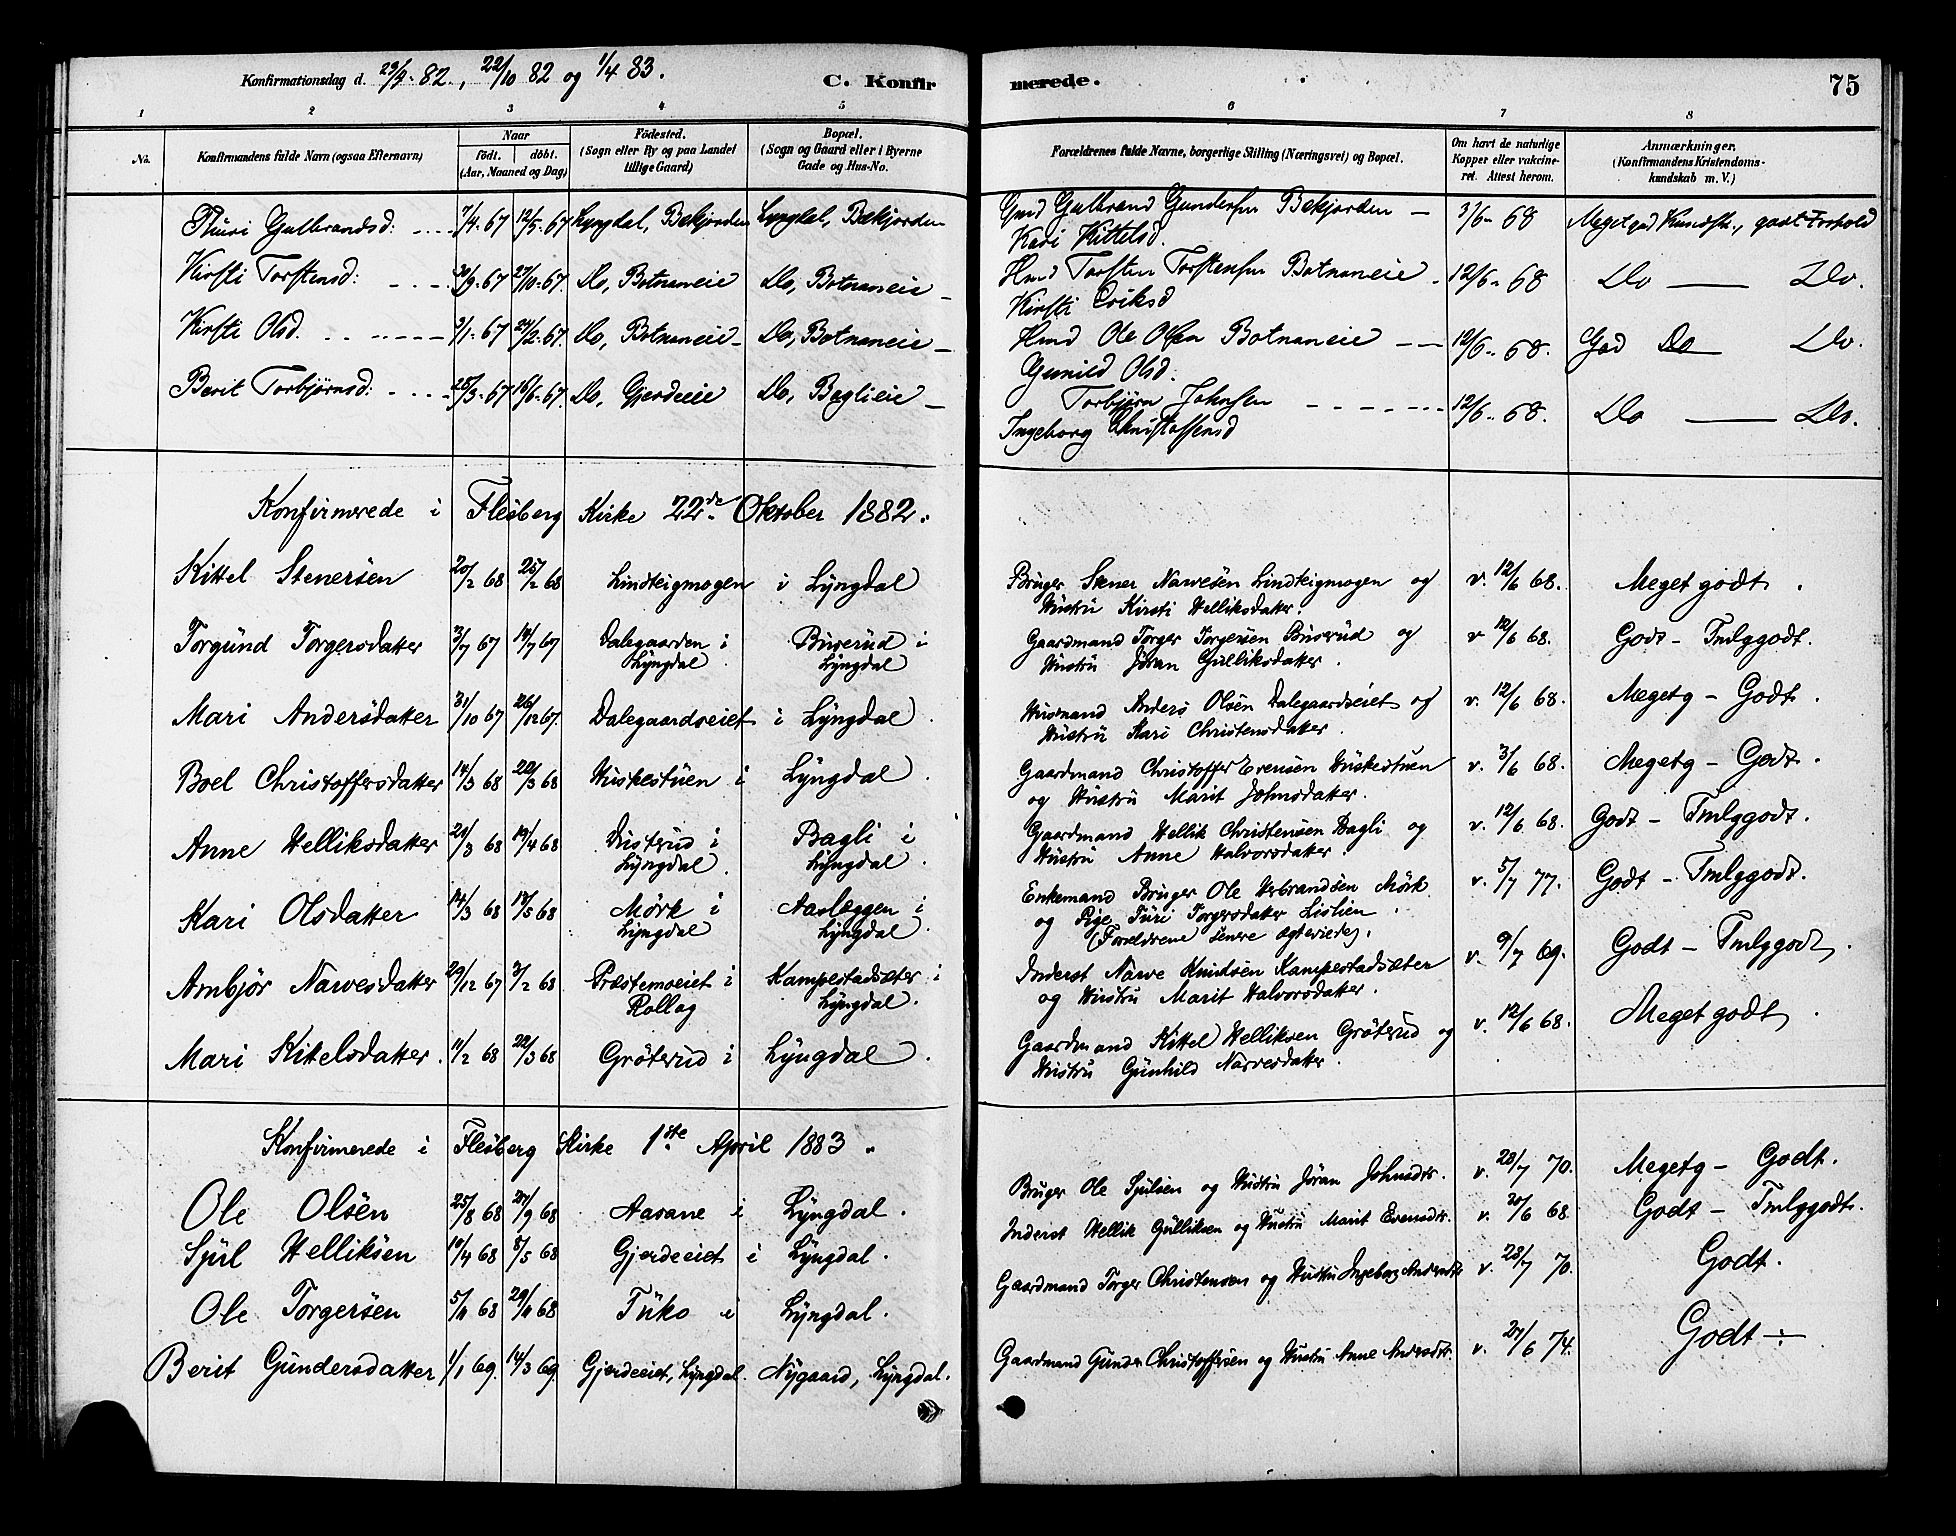 Konfirmationsdag d. 29/9-82., 22/10 82 og 1/4 83.
C. Konfir
merede.
75
1 2 3 4 5 6 7 8
No.
Konfirmandens fulde Navn (ogsaa Efternavn)
Naar
födt. döbt.
(Aar, Maaned og Dag)
Födested.
(Sogn eller By og paa Landet
tillige Gaard)
Bopæl.
(Sogn og Gaard eller i Byerne
Gade og Hus-No.
Forældrenes fulde Navne, borgerlige Stilling (Næringsvei) og Bopæl.
Om havt de naturlige
Kopper eller vakcine-
ret. Attest herom.
Anmærkninger.
(Konfirmandens Kristendoms-
kundskab m. V.)
Thuri Gulbrandsd: 7/4-67 12/5-67 Lyngdal, Bekjorden Lyngdal, Bekjorden Gmd Gulbrand Gundersen Bekjorden 3/6-68 Meget god Kundsk., godt Forhold
Kari Kittelsd.
Kirsti Torstensd: 20/9-67 27/10-67. Do, Botnaneie Do, Botnaneie Hmd Torsten Torstensen Botnaneie 12/6-68 Do Do.
Kirsti Eriksd
Kirsti Olsd. 3/1-67 24/2-67. Do, Botnaneie Do, Botnaneie Hmd Ole Olsen Botnaneie 12/6-68. God Do Do.
Gunild Olsd.
Berit Torbjørnsd: 25/3-67 16/6-67. Do, Gjerdeeie Do, Baglieie Torbjørn Johnsen 12/6-68. Do Do.
Ingeborg Christoffersd
Konfirmerede i Flesberg Kirke 22de Oktober 1882.
Kittel Stenersen 20/2 68 25/2 68 Lindteigmogen i Lyngdal Bruger Stener Narvesen Lindteigmogen og v. 12/6 68. Meget godt.
Hustru Kirsti Helliksdatter.
Torgund Torgersdatter 3/7 67 14/7 67 Dalegaarden i Buverud i Gaardmand Torger Torgersen Buverud og v 12/6 68. Godt - Tmlggodt.
Lyngdal Lyngdal Hustru Jöran Gulliksdatter.
Mari Andersdatter 31/10 67 26/12 67. Dalegaardseiet i Lyngdal. Husmand Anders Olsen Dalegaardseiet og v. 12/6 68. Megetg - Godt.
Hustru Kari Christensdatter.
Boel Christoffersdatter 14/3 68 22/3 68 Huskestuen i Lyngdal. Gaardmand Christoffer Evensen Huskestuen v. 3/6 68. Megetg - Godt.
og Hustru Marit Johnsdatter.
Anne Helliksdatter 21/3 68 19/4 68 Disterud i Bagli i Gaardmand Hellik Christensen Bagli og v. 12/6 68. Godt - Tmlggodt.
Lyngdal. Lyngdal. Hustru Anne Halvorsdatter.
Kari Olsdatter 14/3 68 17/5 68 Mörk i Aasleggen i Enkemand Bruger Ole Herbrandsen Mörk v. 5/7 77. Godt - Tmlggodt.
Lyngdal Lyngdal. og Pige Turi Torgersdatter Lislien.
(Foreldrene senere egteviede).
Ambjör Narvesdatter 29/12 67 3/2 68 Præstemoeiet i Kampestadsæter i Inderst Narve Knudsen Kampestadsæter v. 9/7 69. Godt - Tmlggodt.
Rollag Lyngdal. og Hustru Marit Halvorsdatter.
Mari Kittelsdatter. 11/2 68 22/3 68 Gröterud i Lyngdal. Gaardmand Kittel Helliksen Gröterud og v. 12/6 68. Meget godt.
Hustru Gunhild Narvesdatter
Konfirmerede i Flesberg Kirke 1ste April 1883.
Ole Olsen 25/8 68 27/9 68 Aasane i Lyngdal. Bruger Ole Sjulsen og Hustru Jöran Johnsdtr. v. 28/7 70. Megetg - Godt.
Sjul Helliksen 10/4 68 8/5 68 Gjerdeeiet i Lyngdal. Inderst Hellik Gulliksen og Hustru Marit Evensdtr. v. 20/6 68. Godt - Tmlggodt.
Ole Torgersen 5/11 68 29/11 68 Tuko i Lyngdal. Gaardmand Torger Christensen og Hustru Ingeborg Andersdtr v. 28/7 70. Godt.
Berit Gundersdatter 1/1 69. 14/3 69. Gjerdeeiet, Lyngdal. Nygaard, Lyngdal. Gaardmand Gunder Christoffersen og Hustru Anne Andersdtr. v. 27/6 74. Godt